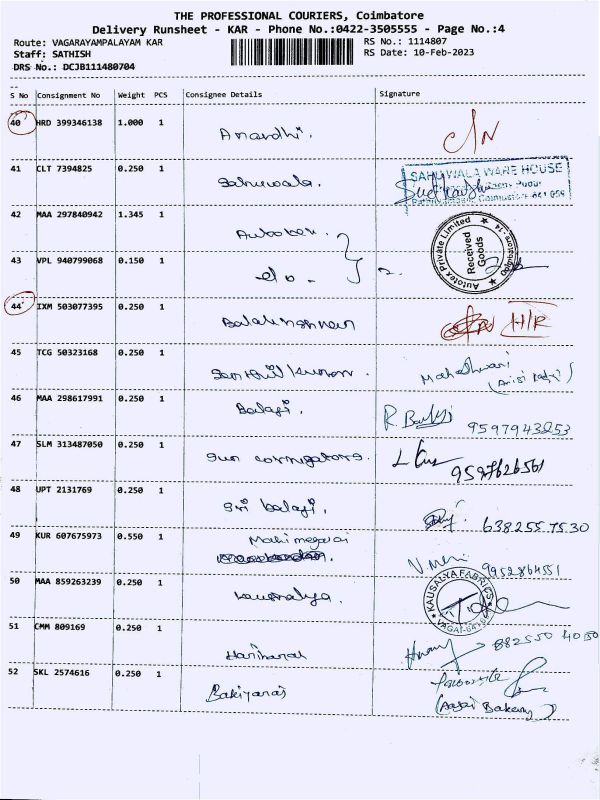 THE PROFESSIONAL COURIERS, Coimbatore
Delivery Runsheet - KAR - Phone No.:0422-3505555 - Page No.:4
Route: VAGARAYAMPALAYAM KAR
RS No.: 1114807
Staff: SATHISH
RS Date: 10-Feb-2023
DRS No.: DCJB111480704
S No Consignment No Weight PCS Consignee Details Signature
40 HRD 399346138 1.000 1 Anandhi.
41 CLT 7394825 0.250 1 Sahuwala.
SAHUWALA WARE HOUSE
42 MAA 297840942 1.345 1
Autotex Private Limited
Received Goods
43 VPL 940799068 0.150 1 do - 2.
44 IXM 503077395 0.250 1 Balakrishnan H/R
45 TCG 50323168 0.250 1 Senthil kumar. Maheshwari
46 MAA 298617991 0.250 1 Balaji.
47 SLM 313487050 0.250 1 Sun corrugators. 9597626561
48 UPT 2131769 0.250 1 Sri balaji. 638255 7530
49 KUR 607675973 0.550 1 Mahimegarai V. Mani 9952864551
50 MAA 859263239 0.250 1 Kausalya.
KAUSALYA FABRICS
51 CMM 809169 0.250 1 Hariharan
52 SKL 2574616 0.250 1 Bakiyaraj
Bakery)